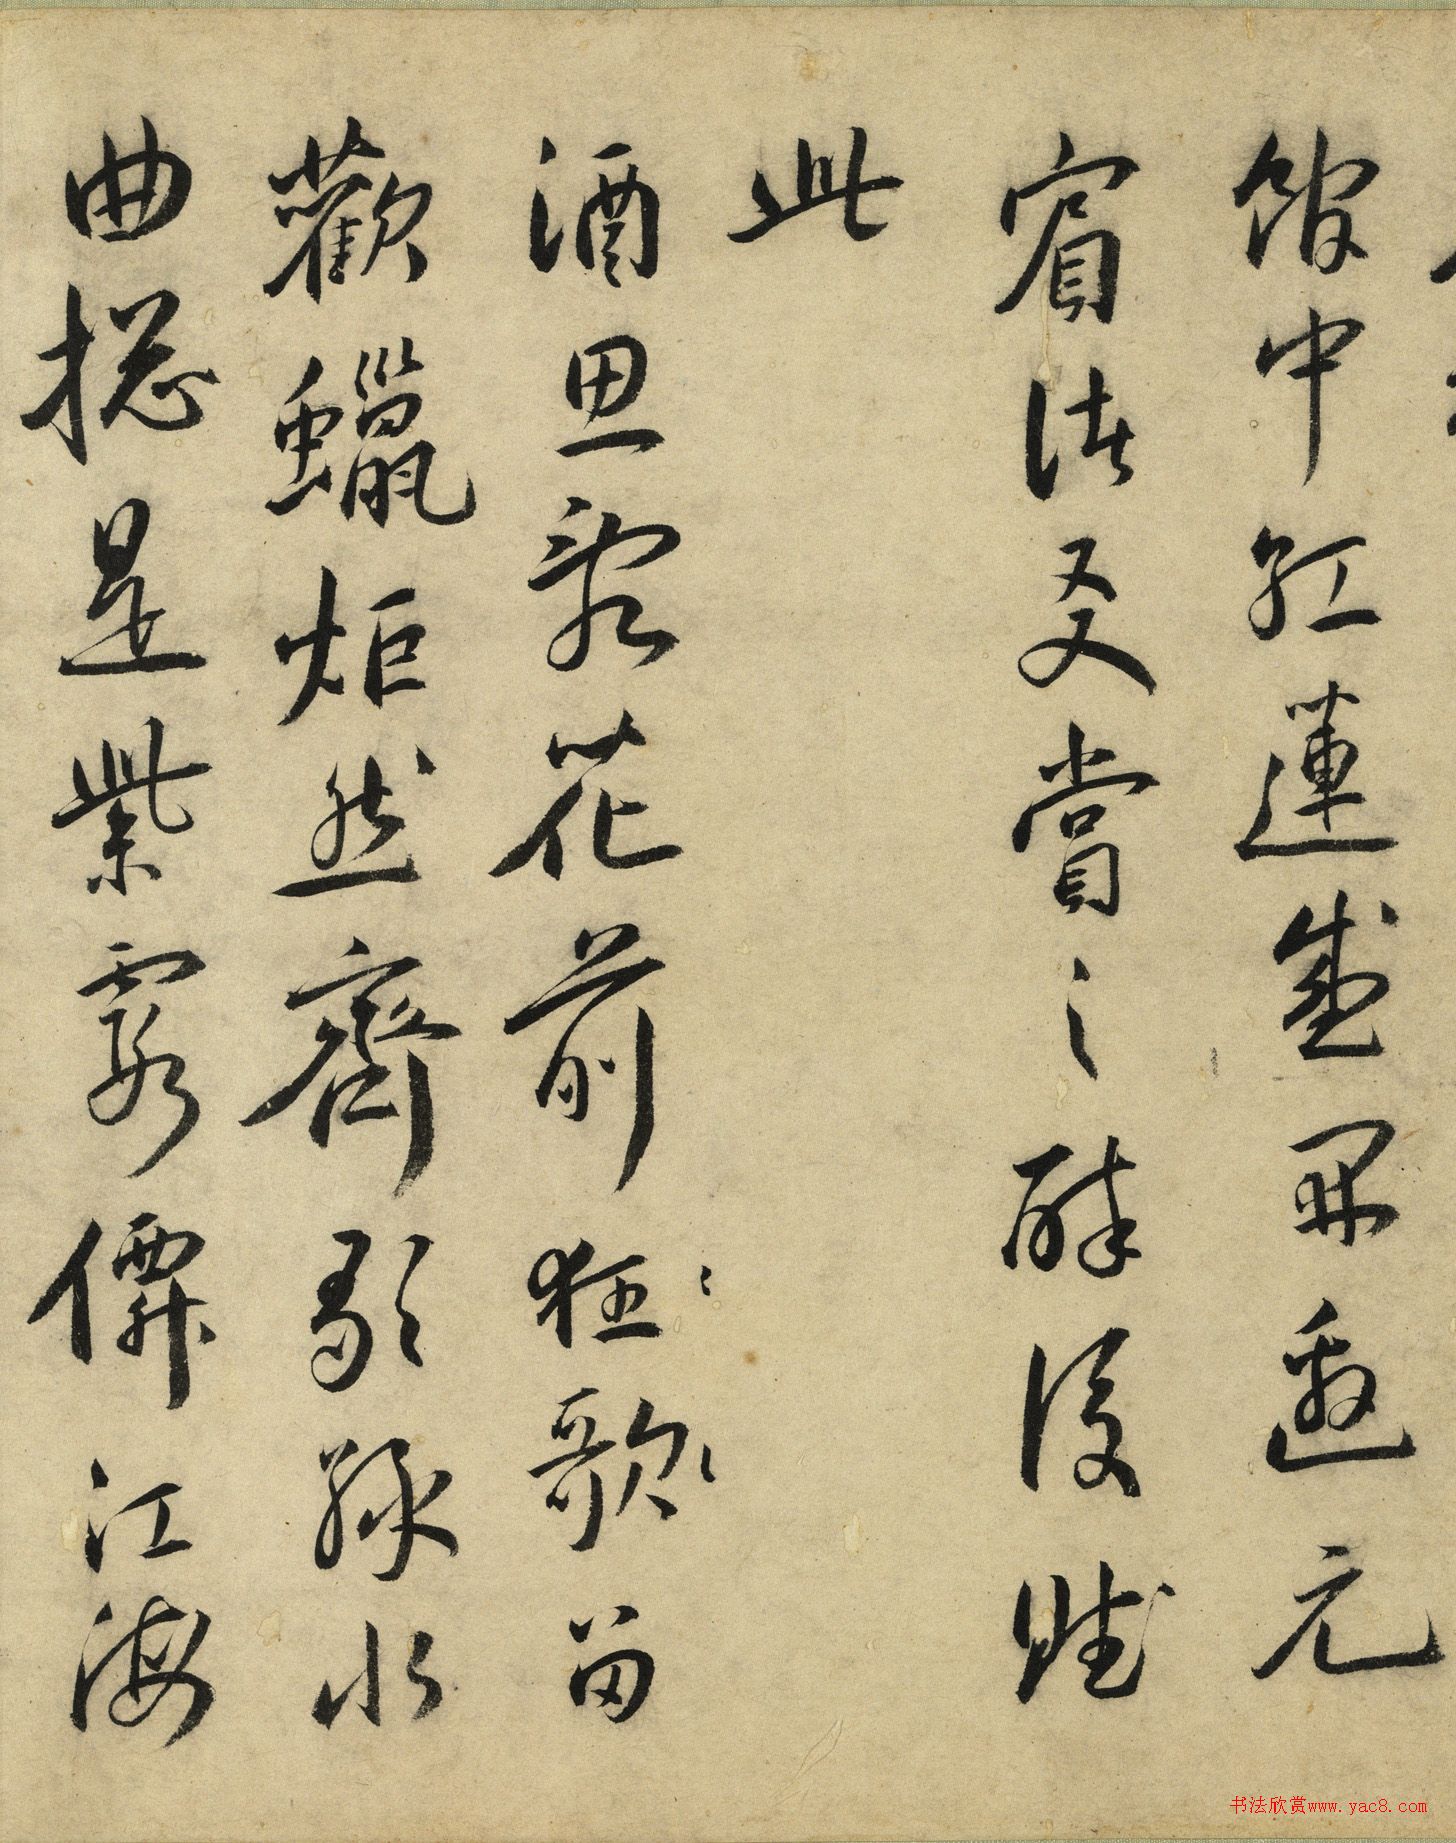 館中紅蓮盛開邀元
賓諸友賞之醉後賦
此
酒思翩花前狂歌留
歡蠟炬然齊歌緑水
曲揔是紫霞僊江海
书法欣赏www.yac8.com